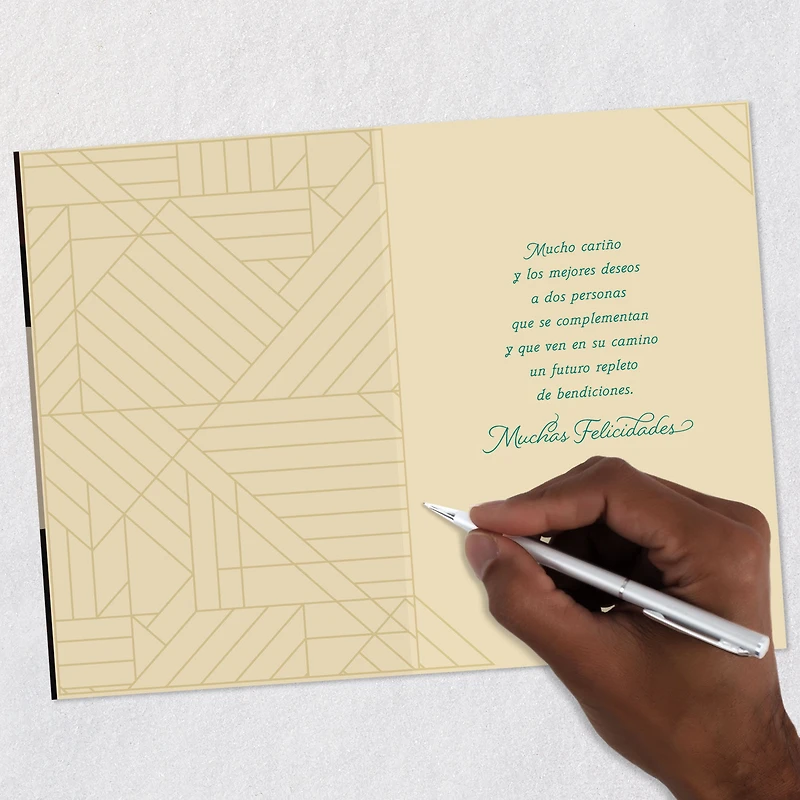 Mucho cariño
y los mejores deseos
a dos personas
que se complementan
y que ven en su camino
un futuro repleto
de bendiciones.
Muchas Felicidades